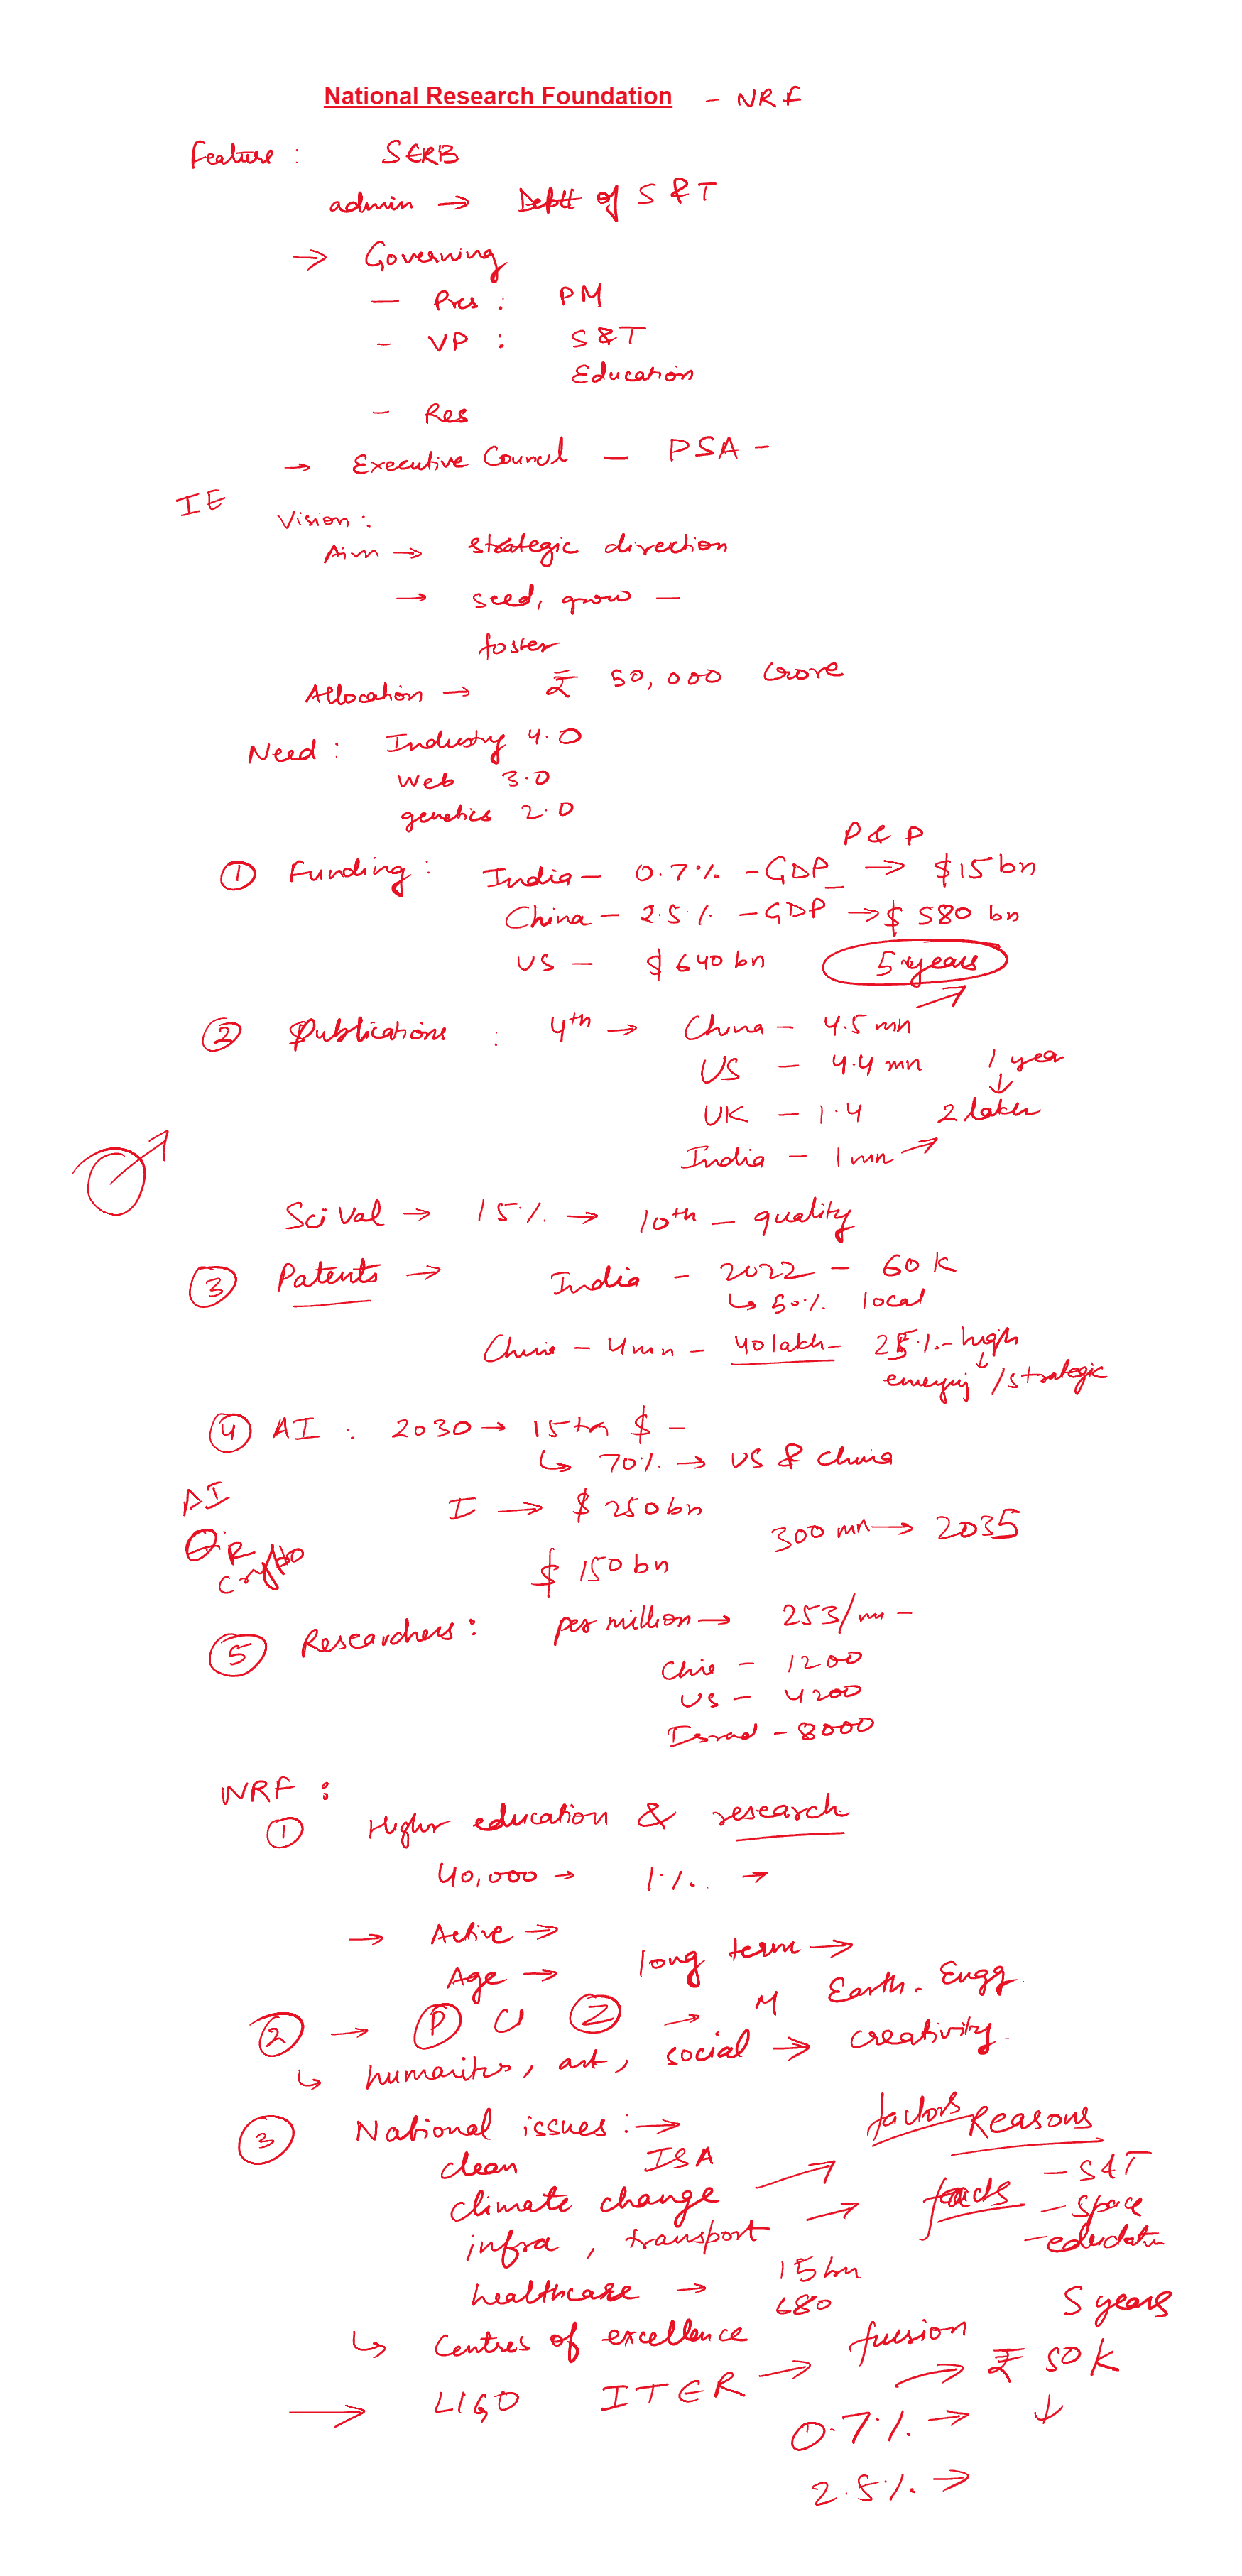 National Research Foundation - NRF
Feature : SERB
admin → Deptt of S & T
→ Governing
- Pres : PM
- VP : S & T
Education
- Res
→ Executive Council - PSA -
IE
Vision :
Aim → strategic direction
→ seed, grow -
foster
Allocation → ₹ 50,000 crore
Need : Industry 4.0
Web 3.0
genetics 2.0
P & P
① Funding : India - 0.7% - GDP → $15 bn
China - 2.5% - GDP → $ 580 bn
US - $ 640 bn 5 years
② Publications : 4th → China - 4.5 mn
US - 4.4 mn 1 year
UK - 1.4 2 lakh
India - 1 mn →
Sci Val → 15% → 10th - quality
③ Patents → India - 2022 - 60 K
↳ 50% local
China - 4 mn - 40 lakh - 25% - high
emerging / strategic
④ AI : 2030 → 15 trn $ -
↳ 70% → US & China
AI I → $ 250 bn
300 mn → 2035
Crypto $ 150 bn
⑤ Researchers : per million → 253/mn -
China - 1200
US - 4200
Israel - 8000
NRF :
① Higher education & research
40,000 → 1% →
→ Active →
Age → long term →
② → P C Z → M Earth. Engg.
↳ humanities, art, social → creativity.
③ National issues : → factors Reasons
clean ISA
climate change → - S&T
infra, transport → facts - space
- education
healthcare → 15 bn
680
5 years
↳ Centres of excellence
→ LIGO ITER → fusion
→ ₹ 50 K
0.7% → ↓
2.5% →